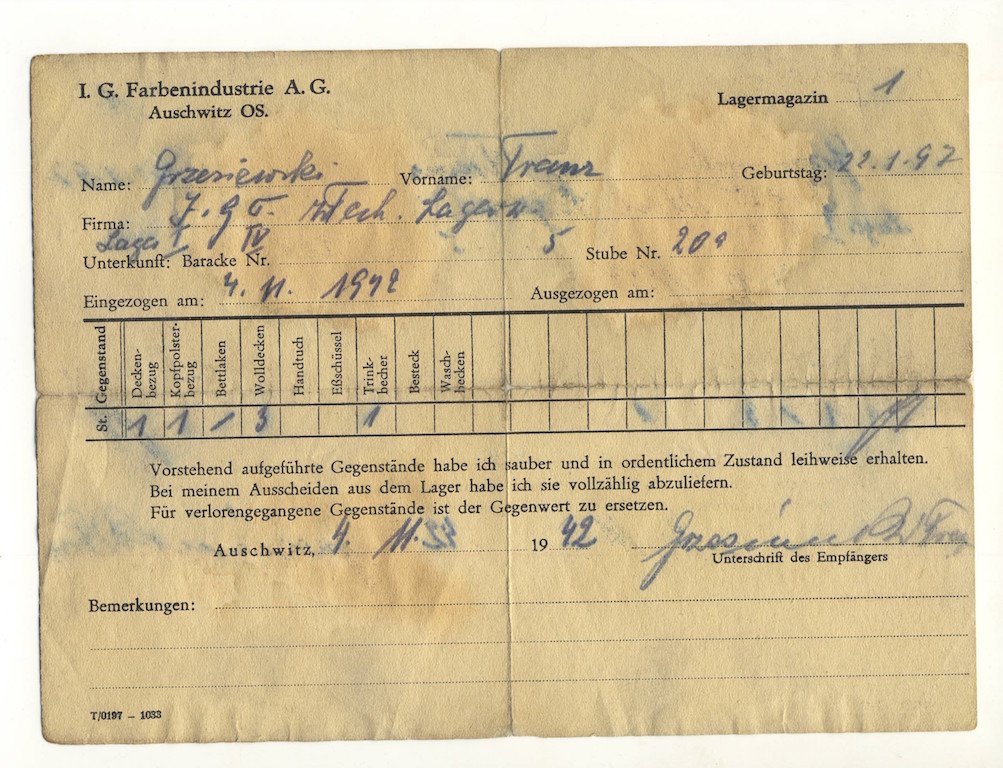 I. G. Farbenindustrie A. G.
Auschwitz OS.
Lagermagazin 1
Name: Grzesiewski Vorname: Franz Geburtstag: 22.1.97
Firma: Lager
Lager I IV
Unterkunft: Baracke Nr. 5 Stube Nr. 20a
Eingezogen am: 4. 11. 1942 Ausgezogen am:
Gegenstand Deckenbezug Kopfpolsterbezug Bettlaken Wolldecken Handtuch Eßschüssel Trinkbecher Besteck Waschbecken
St. 1 1 3 1
Vorstehend aufgeführte Gegenstände habe ich sauber und in ordentlichem Zustand leihweise erhalten.
Bei meinem Ausscheiden aus dem Lager habe ich sie vollzählig abzuliefern.
Für verlorengegangene Gegenstände ist der Gegenwert zu ersetzen.
Auschwitz, 4. 11. 1942
Unterschrift des Empfängers
Bemerkungen:
T/0197 – 1033